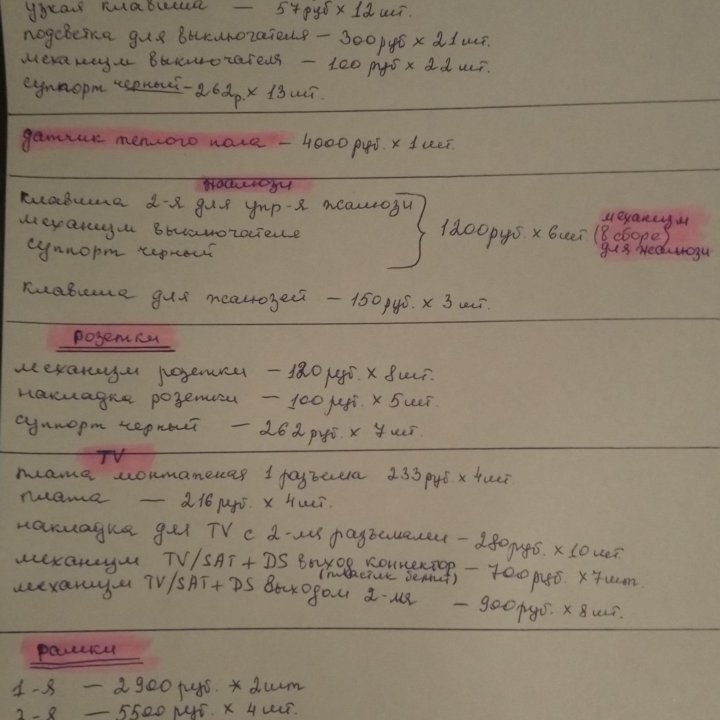 узкая клавиша — 57 руб × 12 шт.
подсветка для выключателя – 300 руб × 21 шт.
механизм выключателя – 100 руб × 22 шт.
суппорт черный – 262 р. × 13 шт.
датчик теплого пола – 4000 руб. × 1 шт.
жалюзи
клавиша 2-я для упр-я жалюзи
механизм выключателя
суппорт черный
} 1200 руб. × 6 шт
механизм
(в сборе)
для жалюзи
клавиша для жалюзей – 150 руб. × 3 шт.
розетки
механизм розетки – 120 руб. × 8 шт.
накладка розетки – 100 руб. × 5 шт.
суппорт черный – 262 руб. × 7 шт.
TV
плата монтажная 1 разъема 233 руб × 4 шт
плата — 216 руб × 4 шт.
накладка для TV с 2-мя разъемами – 280 руб. × 10 шт.
механизм TV/SAT + DS выход коннектор – 700 руб. × 7 шт.
(пластик белый)
механизм TV/SAT + DS выходом 2-мя – 900 руб. × 8 шт.
рамки
1-я — 2900 руб. × 2 шт
2-я — 5500 руб. × 4 шт.